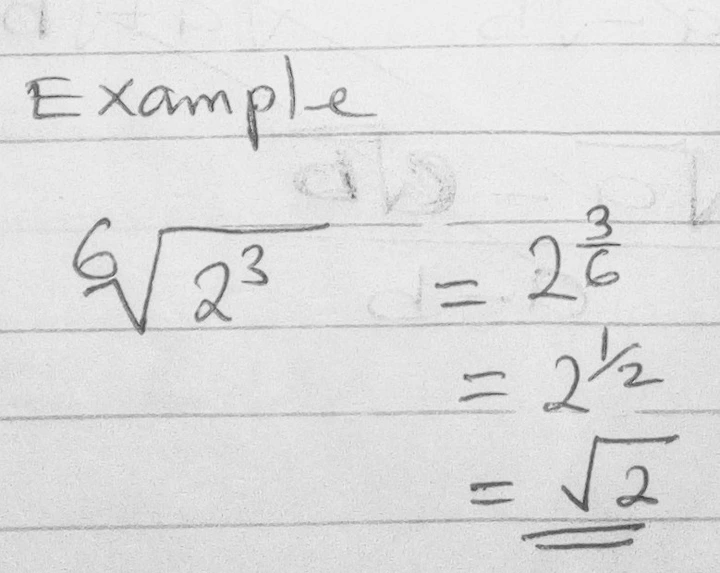 Example
⁶√2³ = 2^(3/6)
= 2^(1/2)
= √2